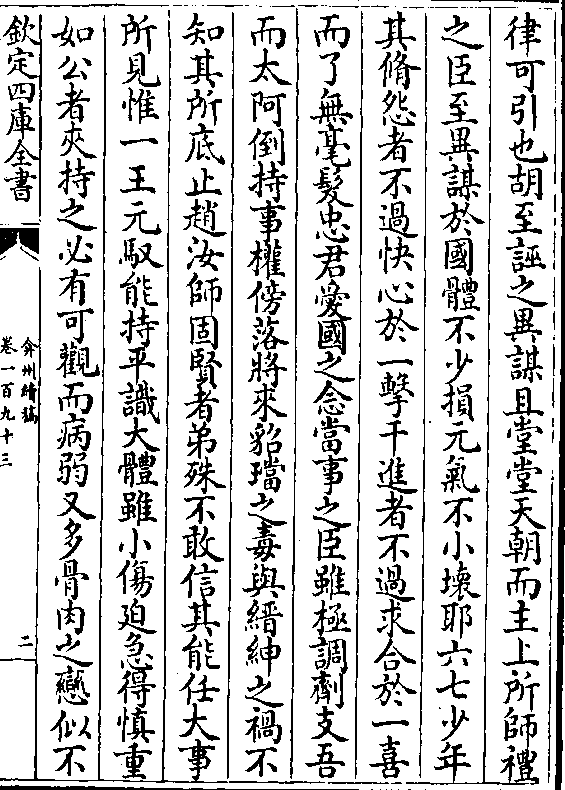 律可引也胡至誣之異謀且堂堂天朝而主上所師禮
之臣至異謀於國體不少損元氣不小壞耶六七少年
其脩怨者不過快心於一擊干進者不過求合於一喜
而了無毫髮忠君愛國之念當事之臣雖極調劑支吾
而太阿倒持事權傍落將來貂璫之毒與縉紳之禍不
知其所底止趙汝師固賢者弟殊不敢信其能任大事
所見惟一王元馭能持平識大體雖小傷迫急得慎重
如公者夾持之必有可觀而病弱又多骨肉之戀似不
欽定四庫全書
弇州續稿
卷一百九十三
二